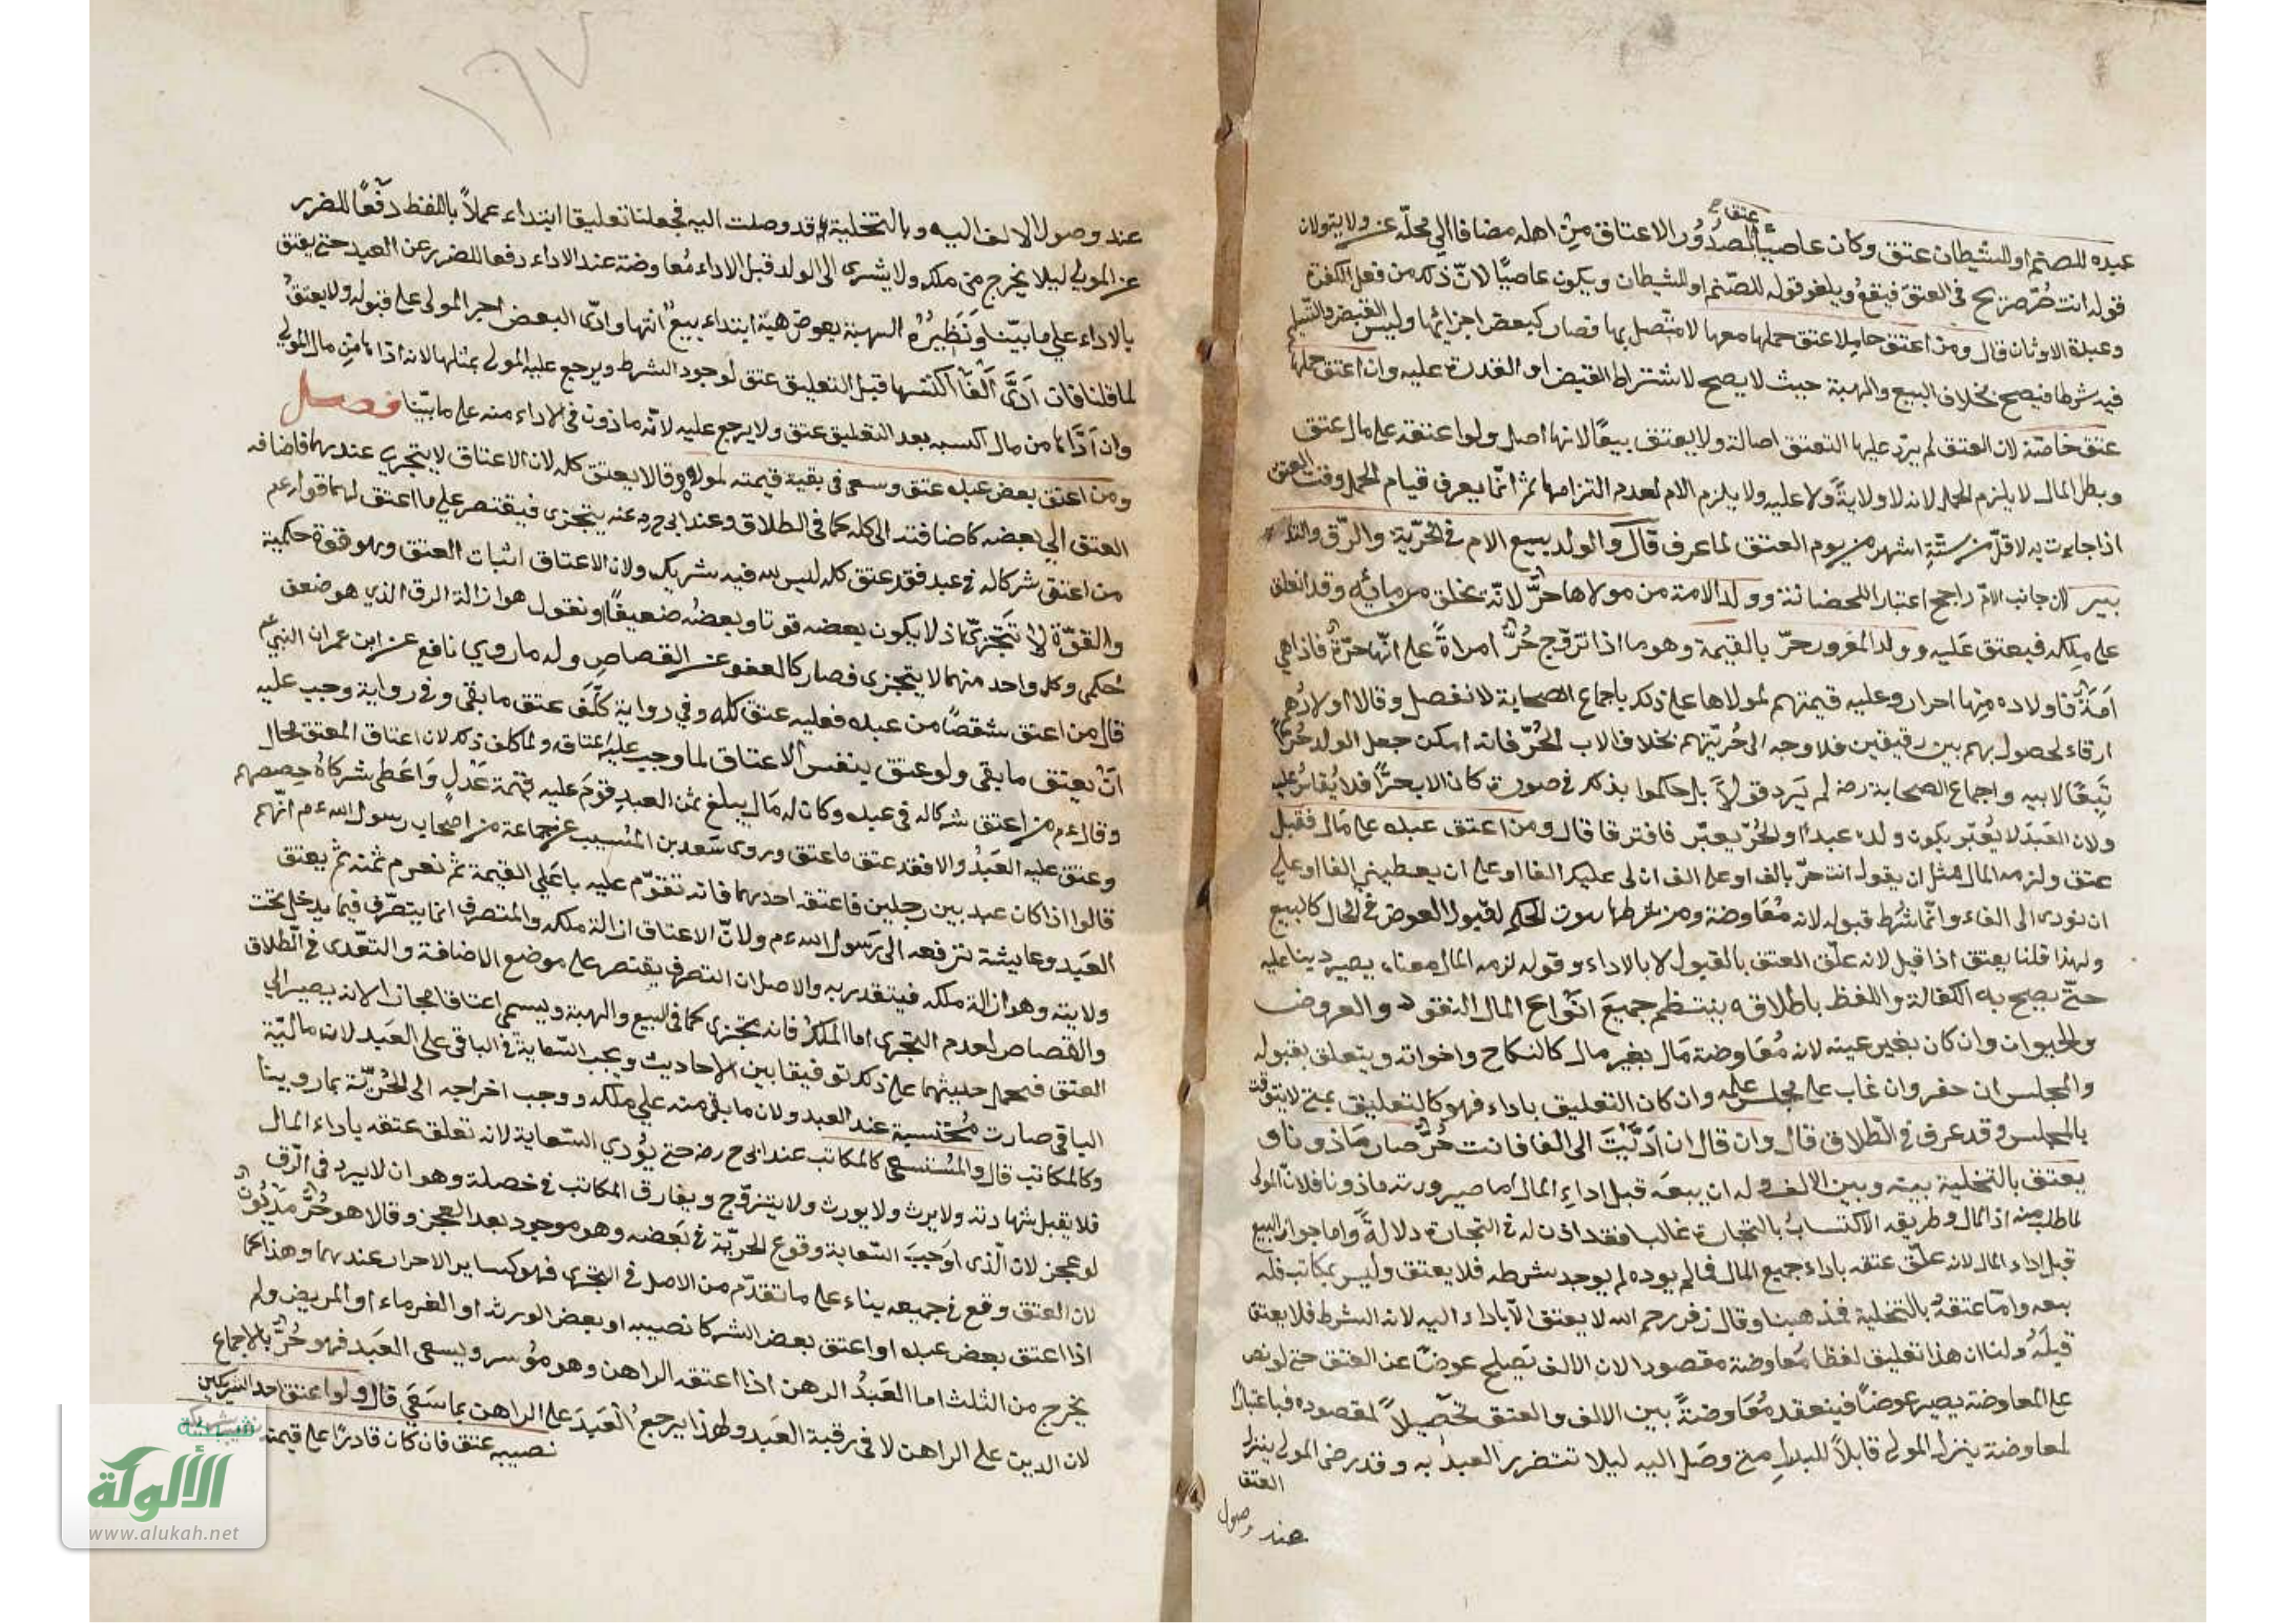 عتق
عبده للصنم او للشيطان عتق وكان عاصيًا لصدُور الاعتاق من اهله مضافا الي محلّه عن ولاية ولان
قوله انت حُرّ صريح في العتق فيقعُ ويلغو قوله للصّنم او للشيطان ويكون عاصيًا لانّ ذلك من فعل الكفرة
وعبدة الاوثان قال ومن اعتق حاملا عتق حملها معها لا متّصل بها فصار كبعض اجزائها وليس القبض والتّسليم
فيه شرطا فيصح بخلاف البيع والهبة حيث لا يصح لاشتراط القبض او القدرة عليه وان اعتق حملها
عتق خاصّة لان العتق لم يرد عليها التعتق اصالة ولا يعتق بيعًا لانها اصل ولو اعتقه على مال عتق
وبطل المال لا يلزم الحمل لانه لا ولايةً ولا عليه ولا يلزم الام لعدم التزامها ثم انّما يعرف قيام الحمل وقت العتق
اذا جاءت به لاقلّ من ستةِ اشهر من يوم العتق لما عرف قال والولد يبيع الام في الحُرّية والرّق والتد
بير لان جانب الامّ راجح اعتبار اللحضانة وولد الامة من مولاها حرٌّ لانّه يخلق من مائِه وقد انعلق
على مِلكه فيعتق عَليه وولد المغرور حرّ بالقيمة وهو ما اذا تزوّج حُرٌّ امراةً على انّها حرّةٌ فاذا هي
اَمَةٌ فاولاده مِنها احرار وعليه قيمتهم لمولاها على ذلك باجماع الصحابة لانفصل وقالا اولادُهم
ارقاء لحصولهم بين رقيقين فلا وجه الى حُريّتهم بخلاف الاب الحُرّ فانه امكن جعل الولد حُرًّا
تَبعًا لابيه واجماع الصحابة رضه لم يَرد قولاً بل حكموا بذلك في صورة كان الاب حرًّا فلا يُقاسُ عليه
ولان العَبدَ لا يُعبّر بكون ولده عبدًا والحُرّ يعبّر فافترقا قال ومن اعتق عبده على مَال فقبل
عتق ولزمه المال مثل ان يقول انت حرّ بالف او على الف ان لى عليك الفا او على ان يعطيني الفا او على
ان تؤدى الى الفاء وانّما شُرط قبوله لانه مُعَاوضة ومن شرطها ثبوت الحكم لقبول العوض في الحال كالبيع
ولهذا قلنا يعتق اذا قبل لانه علّق العتق بالقبول لا بالاداء وقوله لزمه المال معناه يصير دينا عليه
حتّى يصح به الكفالة واللفظ باطلاقه ينتظم جميعَ انوَاع المال النقود والعروض
والحيوان وان كان بغير عينه لانه مُعَاوضة مَال بغير مال كالنكاح واخواته ويتعلق بقبوله
والمجلس ان حضر وان غاب على مجلس علمه وان كان التعليق باداء فهو كالتعليق بمتى لا يتوقت
بالمجلس وقد عرف في الطّلاق قال وان قال ان اَدّيْتَ الى الفا فانت حُرٌّ صار مَاذونا و
يعتق بالتخلية بينه وبين الالف وله ان يبعه قبل اداءِ المال اما صيرورته ماذونا فلانّ المولى
لما طلب منه اذ المال وطريقه الاكتسابُ بالتجارة غالبا فقد اذن له في التجارة دلالةً واما جواز البيع
قبل اداء المال لانه علّق عتقه باداء جميع المال فما لم يوده لم يوجد شرطه فلا يعتق وليس بمكاتب فله
بيعه وامّا عتقهُ بالتخلية فمذهبنا وقال زفر رحمه الله لا يعتق الّا باداء اليه لانه الشرط فلا يعتق
قبلَهُ ولنا ان هذا تعليق لفظا مُعَاوضة مقصودا لان الالف تصلح عوضًا عن العتق حتى لو نص
على المعاوضة يصير عوضًا فينعقد مُعَاوضةً بين الالف والعتق تحْصيلاً لمقصوده فباعتبار
لمعاوضة ينزل المولى قابلاً للبدل متى وصَل اليه ليلا تتضرر العبدُ به وقد رضى المولى ينزل
العتق
عند وصول
١٦٧
عند وصول الالف اليه وبالتخلية قد وصلت اليه فجعلنا تعليقا ابتداء عملاً باللفظ دفعًا للضرر
عن المولى ليلا يخرج من ملكه ولا يشرى الى الولد قبل الاداء مُعاوضة عند الاداء دفعا للضرر عن العبد حتى يعتق
بالاداء على ما بيّنا ونَظيرُهُ الهبة بعوض هبة ابتداء بيعٌ انتها وادّى البعض اجبر المولى على قبوله ولا يعتقُ
لما قلنا فان اَدَّى اَلفًا اكتسبها قبل التعليق عتق لوجود الشرط ويرجع عليه المولى بمثلها لانه اذا ها من مال المولي
وان اَدَّاها من مال اكسبه بعد التعليق عتق ولا يرجع عليه لانّه ماذون في الاداء منه على ما بيّنا فصل
ومن اعتق بعض عبده عتق وسعى في بقية قيمته لمولاه وقالا يعتق كله لان الاعتاق لا يتجزى عندهما فاضافه
العتق الي بعضه كاضافته الى كله كما في الطلاق وعند ابى ح رح عنه يتجزى فيقتصر على ما اعتق لهما قوله عم
من اعتق شركا له في عبد فقد عتق كله ليس لله فيه شريك ولان الاعتاق اثبات العتق وهو قوة حكمية
والقوّة لا تتجّزىّ اذ لا يكون بعضه قوتا وبعضُه ضعيفًا ونقول هو ازالة الرق الذي هو ضعف
حُكمى وكل واحد منهما لا يتجزى فصار كالعفو عن القصاصِ وله ما روي نافع عن ابن عمران النبي عم
قال من اعتق شقصًا من عبده فعليه عتق كله وفي رواية كلّف عتق ما بقى وفي رواية وجب عليه
انْ يعتق ما بقى ولو عتق بنفس الاعتاق لما وجب عليه اعتاقه ولما كلف ذلك لان اعتاق المعتق محال
وقال عم من اعتق شركا له في عبده وكان له مَال يبلغ ثمن العبدِ قوّمَ عليه قيمة عَدْلٍ وَاعَطى شركاهُ حِصصهم
وعتق عليه العَبدُ والا فقد عتق ما عتق وروى سَعد بن المُسيب عن جماعة من اصحاب رسول الله عم انّهم
قالوا اذا كان عبد بين رجلين فاعتقه احدهما فانه تقوّم عليه باعَلى القيمة ثم نغرم ثمنه ثم يعتق
العَبد وعايشة ترفعه الى رَسول الله عم ولانّ الاعتاق ازالة ملكه والمتصرف انما يتصّرف فيما يدخل تحت
ولايته وهو ازالة ملكه فيتقدر به والاصل ان التصرف يقتصر على موضع الاضافة والتعّدى في الّطلاق
والقصاص لعدم التجزى اما الملكُ فانه يتجزى كما في البيع والهبة ويسمى اعتاقا مجازا لانه يصير الى
العتق فنحمل حديثهما على ذلك توفيقا بين الاحاديث ويجب السّعاية في الباقي على العَبد لان ماليّة
الباقي صارت مُحتبسة عند العبد ولان ما بقى منه علي ملكه ووجب اخراجه الى الحُرّيّة بما روينا
وكالمكاتب قال والمُستسعى كالمكاتب عند ابى ح رضه حتى يؤدي السّعاية لانه تعلق عتقه باداء المال
فلا يقبل شهادته ولا يرث ولا يورث ولا يتزوّج ويفارق المكاتب في خصلة وهو ان لا يرد في الرّق
لو عجز لان الّذى اوَجبَ السّعاية وقوع الحريّة في بَعضه وهو موجود بعد العجز وقالا هو حُرٌّ مَدْيُونٌ
لان العتق وقع في جميعه بناء على ما تقدّم من الاصل في التجزى فهو كساير الاحرار عندهما وهذا كما
اذا اعتق بعض عبده او اعتق بعض الشركا نصيبه او بعض الورثه او الغرماء او المريض ولم
يخرج من الثلث اما العَبدُ الرهن اذا اعتقه الراهن وهو مؤسر ويسعى العَبد فهو حُرٌّ بالاجماع
لان الدين على الراهن لا في رقبة العَبد ولهذا يرجع العَبدَ على الراهن بما سَعَى قال ولو اعتق احد الشريكين
نصيبه عتق فان كان قادرًا على قيمة
شبكة
الألوكة
www.alukah.net